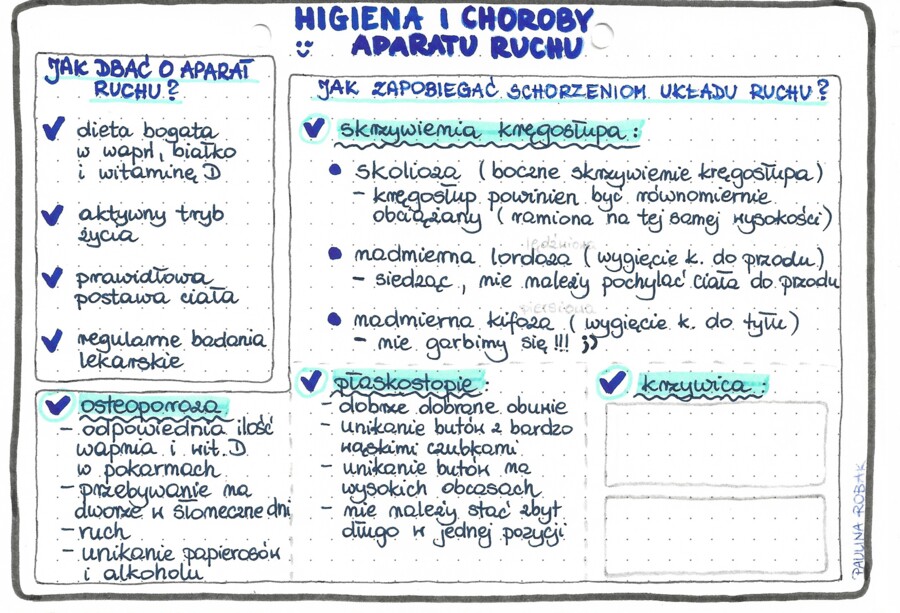 HIGIENA I CHOROBY
APARATU RUCHU
JAK DBAĆ O APARAT
RUCHU?
dieta bogata
w wapń, białko
i witaminę D
aktywny tryb
życia
prawidłowa
postawa ciała
regularne badania
lekarskie
JAK ZAPOBIEGAĆ SCHORZENIOM UKŁADU RUCHU?
skrzywienia kręgosłupa:
skolioza (boczne skrzywienie kręgosłupa)
- kręgosłup powinien być równomiernie
obciążany (ramiona na tej samej wysokości)
lędźwiowa
nadmierna lordoza (wygięcie k. do przodu)
- siedząc, nie należy pochylać ciała do przodu
piersiowa
nadmierna kifoza (wygięcie k. do tyłu)
- nie garbimy się!!! ;)
osteoporoza
- odpowiednia ilość
wapnia i wit. D
w pokarmach
- przebywanie na
dworze w słoneczne dni
- ruch
- unikanie papierosów
i alkoholu
płaskostopie:
- dobrze dobrane obuwie
- unikanie butów z bardzo
wąskimi czubkami
- unikanie butów na
wysokich obcasach
- nie należy stać zbyt
długo w jednej pozycji
krzywica:
PAULINA ROBAK